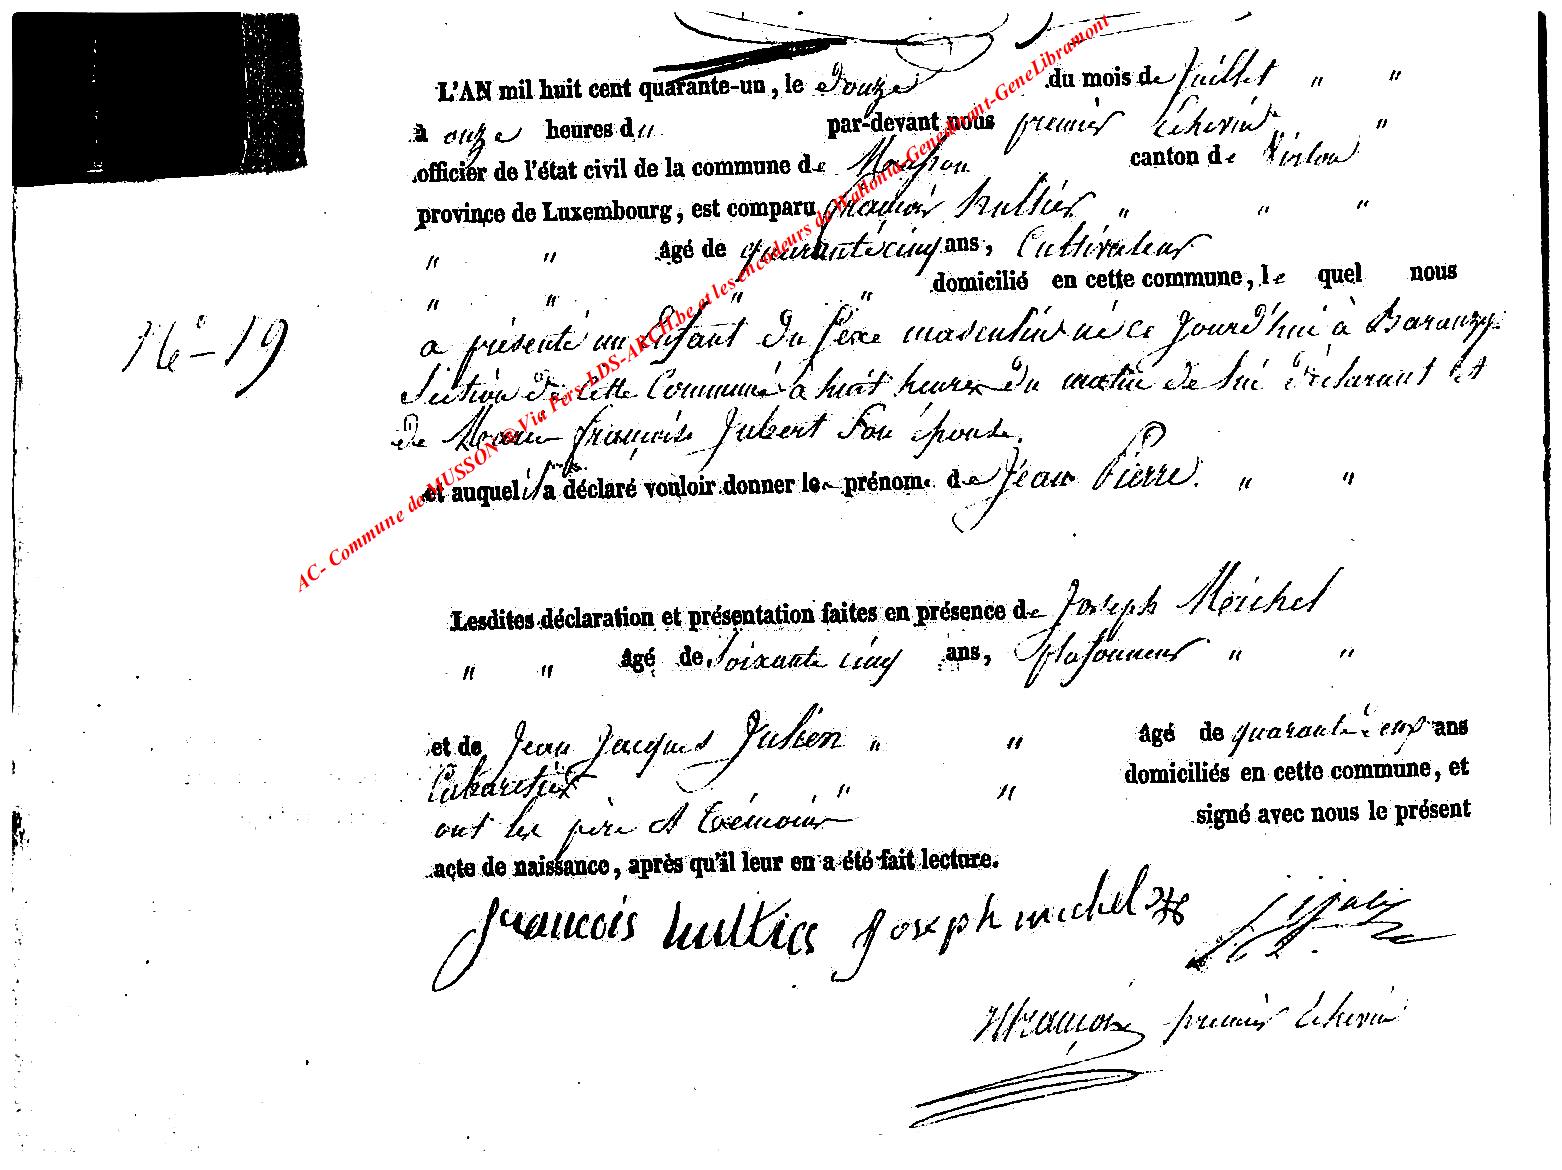 L'AN mil huit cent quarante-un, le Douze du mois de Juillet " "
à onze heures du par-devant nous premier Echevin "
officier de l'état civil de la commune de Musson canton de Virton
province de Luxembourg, est comparu françois hultier " " "
" " Agé de quarante cinq ans, Cultivateur
" " " " domicilié en cette commune, le quel nous
N° 19
a présenté un Enfant du sexe masculin né ce jourd'hui à Baranzy
Section de cette Commune à huit heures du matin de lui déclarant et
de Marie françoise Jubert son épouse
et auquel il a déclaré vouloir donner le prénom de Jean Pierre. " "
Lesdites déclaration et présentation faites en présence de Joseph Michel
" " âgé de Soixante cinq ans, plafonneur " "
et de Jean Jacques Julien " " âgé de quarante ans
Cabaretier " " domiciliés en cette commune, et
ont les père et témoins signé avec nous le présent
acte de naissance, après qu'il leur en a été fait lecture.
francois hultier Joseph michel
premier Echevin
AC- Commune de MUSSON @Via Pers-LDS-ARCH.be et les encodeurs de Wallonia-Genedinant-GeneLibramont